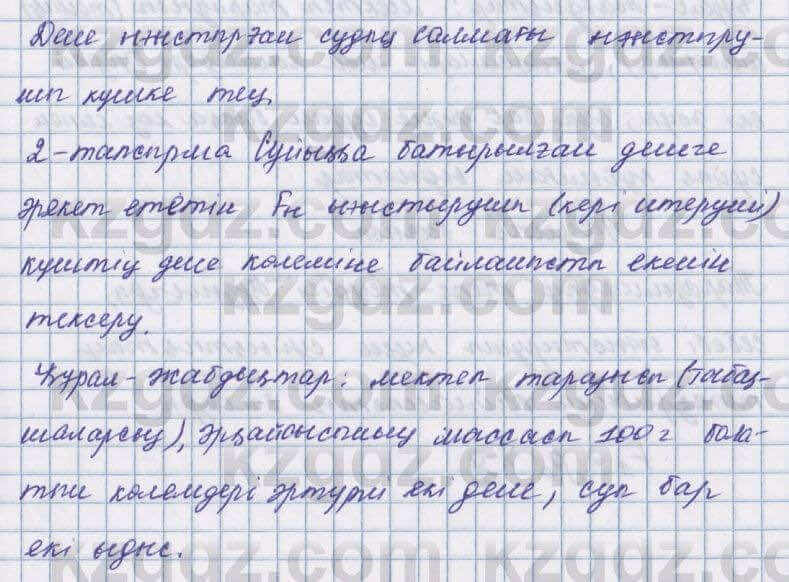 Дене ығыстырған судың салмағы ығыстыру-
шы күшке тең.
2-тапсырма Сұйыққа батырылған денеге
әрекет ететін Fы ығыстырушы (кері итеруші)
күштің дене көлеміне байланысты екенін
тексеру.
Құрал-жабдықтар: мектеп таразысы (табақ-
шаларсыз), әрқайсысының массасы 100 г бола-
тын көлемдері әртүрлі екі дене, суы бар
екі ыдыс.